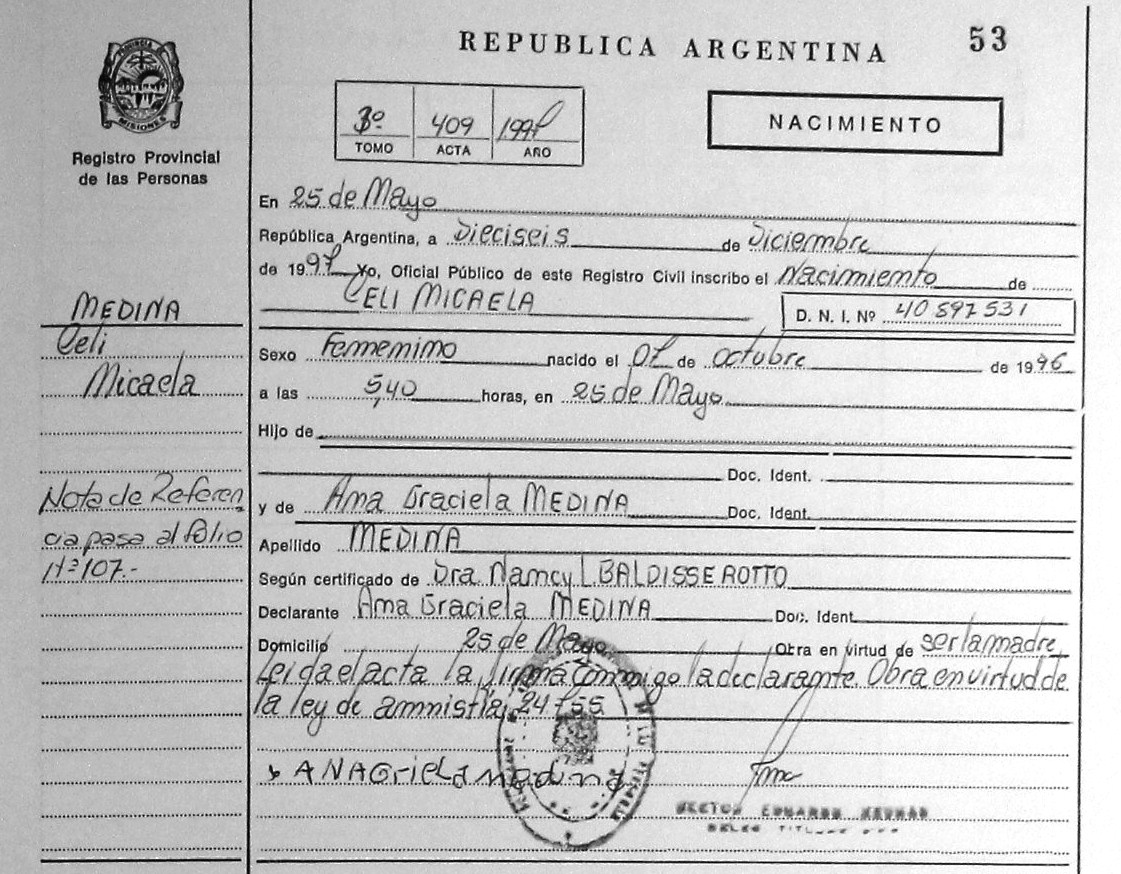 PROVINCIA DE
MISIONES
Registro Provincial
de las Personas
REPUBLICA ARGENTINA
53
3º 409
TOMO ACTA AÑO
NACIMIENTO
En 25 de Mayo
República Argentina, a Dieciseis de Diciembre
de 199 Yo, Oficial Público de este Registro Civil inscribo el Nacimiento de
CELI MICAELA
D. N. I. Nº 40 597 531
Sexo Femenino nacido el de octubre de 1996
a las 5,40 horas, en 25 de Mayo
Hijo de
Doc. Ident.
y de Ana Graciela MEDINA Doc. Ident.
Apellido MEDINA
Según certificado de Dra. Nancy L BALDISSEROTTO
Declarante Ana Graciela MEDINA Doc. Ident.
Domicilio 25 de Mayo Obra en virtud de ser la madre
Leida el acta la firma conmigo la declarante. Obra en virtud de
la ley de amnistía 24755
ANA GrielA madina
HECTOR EDUARDO
MEDINA
Celi
Micaela
Nota de Referen
cia pasa al folio
Nº 107.-